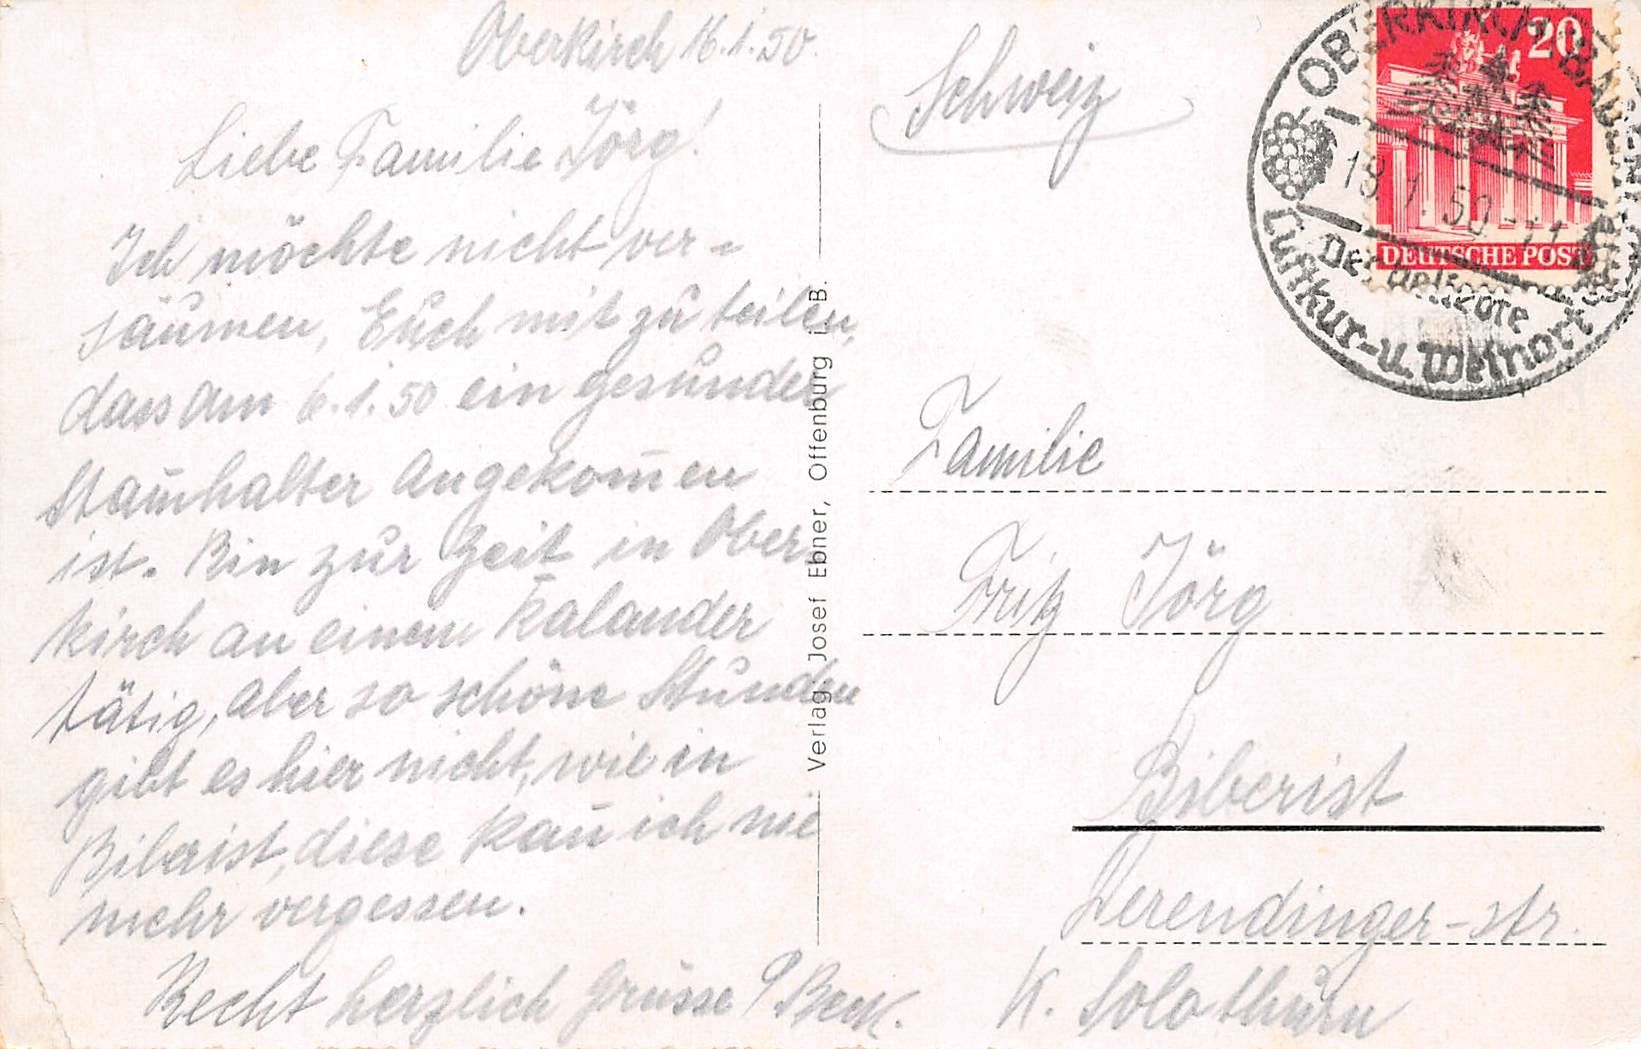 Oberkirch 16.1.50.
Liebe Familie Jörg!
Ich möchte nicht ver-
säumen, Euch mit zu teilen,
dass am 6.1.50 ein gesunder
Stam̄halter angekom̄en
ist. Bin zur Zeit in Ober-
kirch an einem Kalander
tätig, aber so schöne Stunden
gibt es hier nicht, wie in
Biberist, diese kan̄ ich nie
mehr vergessen.
Recht herzlich Grüsse
Verlag Josef Ebner, Offenburg i. B.
Schweiz
20
DEUTSCHE POST
OBERKIRCH
18.1.50
Der beliebte
Luftkur-u. Weinort
Familie
Fritz Jörg
Biberist
Derendinger-str.
K. Solothurn